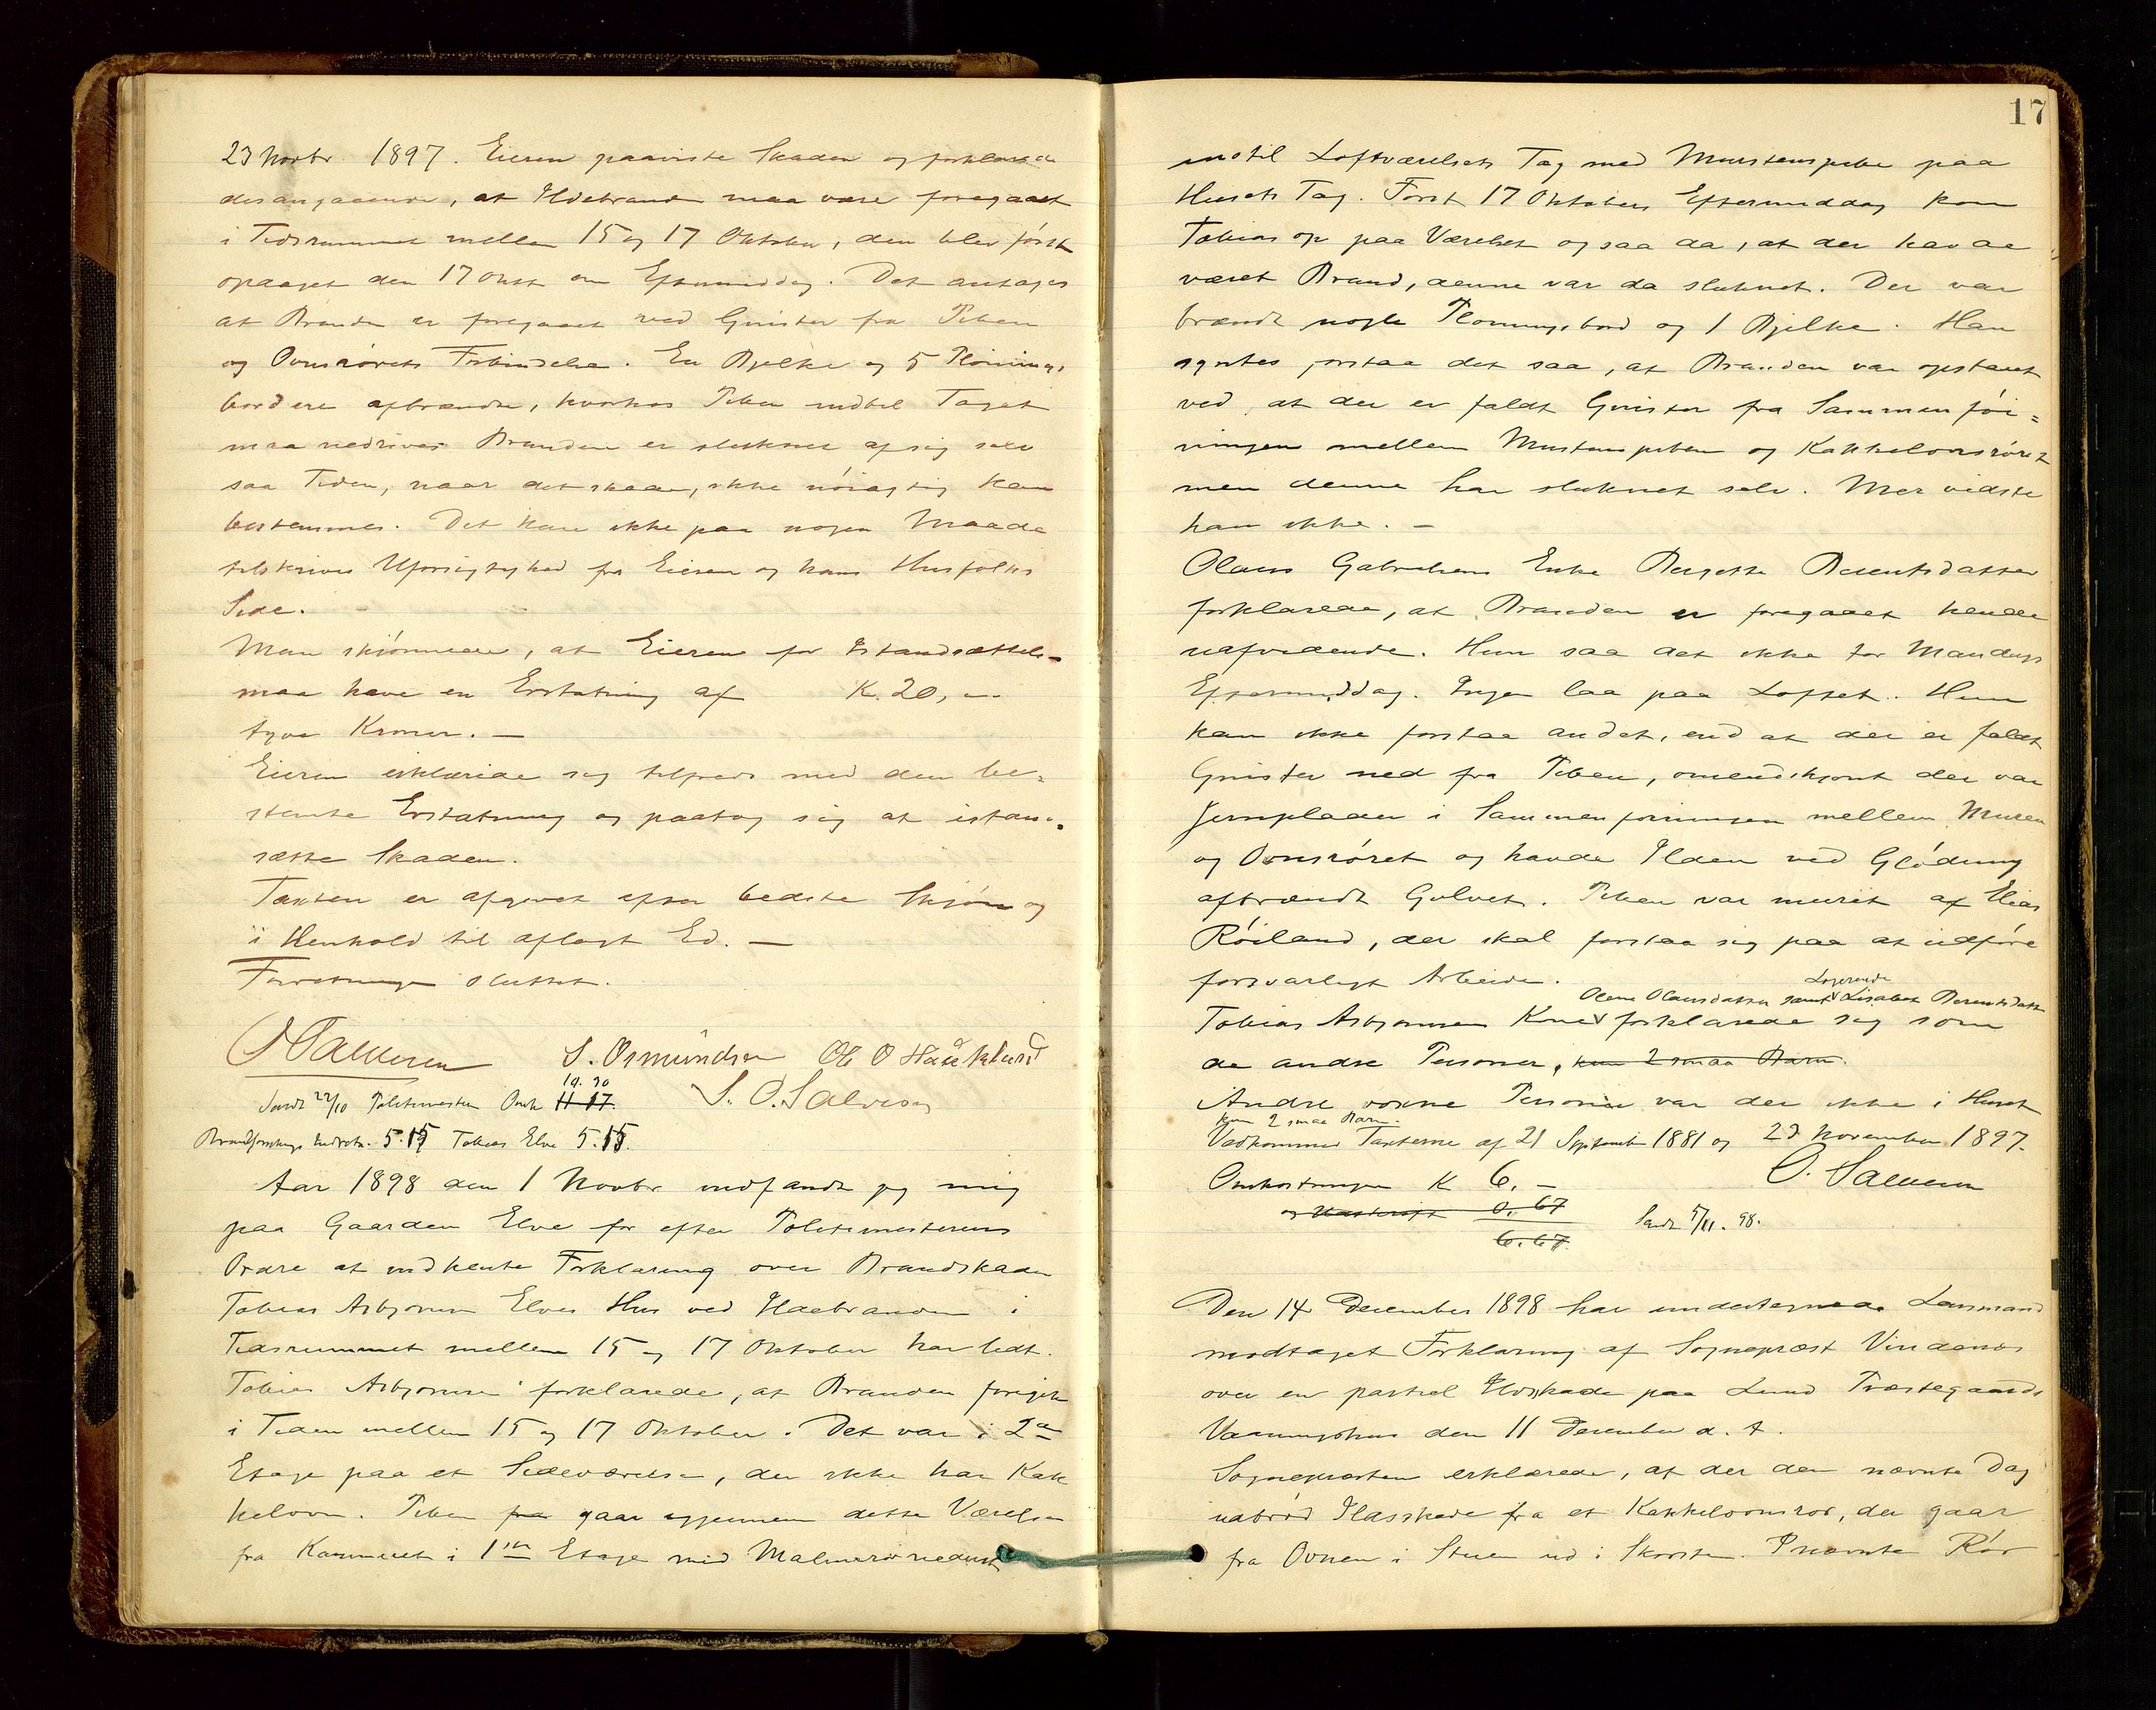 23 Novbr. 1897. Eieren paaviste Skaden og forklarede
desangaaende, at Ildebrande maa være foregaaet
i Tidsrummet mellem 15 og 17 Oktober, den blev først
opaaget den 17 Okt om Eftermiddag. Det antages
at Branden er foregaaet ved Gnister fra Piben
og Ovnsrørets Forbindelse. En Bjelke og 5 Pløinings
bord ere afbrændte, hvorhos Piben indtil Taget
maa nedrives. Branden er sluknet af sig selv
saa Tiden, naar det skede, ikke nøiagtig kan
bestemmes. Det kan ikke paa nogen Maade
tilskrives Uforsigtighed fra Eieren og hans Husfolks
Side.
Man skjønnede, at Eieren for Istandsættels-
maa have en Erstatning af K. 20, —
tyve Kroner. —
Eieren erklærede sig tilfreds med den be=
stemte Erstatning og paatog sig at istand=
sætte Skaden.
Taxten er afgivet efter bedste Skjøn og
i Henhold til aflagt Ed. —
Forretningen sluttet.
S. Osmundsen Ole O Haukland
19. 30
Sendt 22/10 Politimesteren Omk 11 17. S. O. Salvesen
5.15 Tobias Elve 5.15.
Aar 1898 den 1 Novbr indfandt jeg mig
paa Gaarden Elve for efter Politimesterens
Ordre at indhente Forklaring over Brandskaden
Tobias Asbjornsen Elves Hus ved Ildebranden i
Tidsrummet mellem 15 og 17 Oktober har lidt.
Tobias Asbjornsen forklarede, at Branden foregik
i Tiden mellem 15 og 17 Oktober. Det var i 2den
Etage paa et Sideværelse, der ikke har Kak
kelovn. Piben fra gaar igjennem dette Værelse
fra Kammeret i 1ste Etage med
17
indtil Loftværelsets Tag med Murstenspibe paa
Husets Tag. Først 17 Oktobers Eftermiddag kom
Tobias op paa Værelset og saa da, at der havde
været Brand, denne var da sluknet. Der var
brændt nogle Pløningsbord og 1 Bjelke. Han
syntes forstaa det saa, at Branden var opstaaet
ved, at der er faldt Gnister fra Sammenføi=
ningen mellem Murstenspiben og Kakkelovnsrøret
men denne har sluknet selv. Mer vidste
han ikke. —
Olaus Gabrielsens Enke Bergette Berentsdatter
forklarede, at Branden er foregaaet hende
uafvidende. Hun saa det ikke før Mandags
Eftermiddag. Ingen laa paa Loftet. Hun
kan ikke forstaa andet, end at der er faldt
Gnister ned fra Piben, omendskjønt der var
Jernplader i Sammenføiningen mellem Muren
og Ovnsrøret og havde Ilden ved Glødning
afbrændt Gulvet. Piben var muret af Elias
Røiland, der skal forstaa sig paa at udføre
forsvarligt Arbeide.
Logerende
Olene Olausdatter samt Lisabet Berentsdatter
Tobias Asbjornsens Kone forklarede sig som
de andre Personer, kun 2 smaa Barn.
Andre voxne Personer var der ikke i Huset
kun 2 smaa Barn.
Vedkommer Taxterne af 21 September 1881 og 23 November 1897.
Omkostningen K 6. —
og 0.67
6.67
Sendt 5/11. 98.
Den 14 December 1898 har undertegnede Lensmand
modtaget Forklaring af Sogneprest Vindenes
over en partiel Ildsskade paa Lund Præstegaards
Vaaningshus den 11 December d. A.
Sognepresten erklærede, at der den nævnte Dag
udbrød Ildsskade fra et Kakkelovnsrør, der gaar
fra Ovnen i Stuen ud i Skorsten. I nævnte Rør